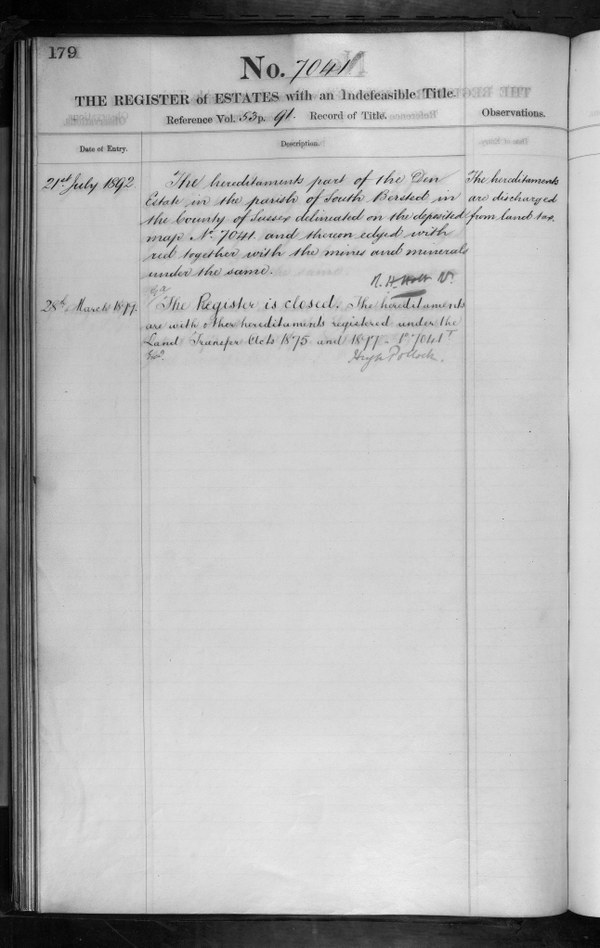 179
No. 7041
THE REGISTER of ESTATES with an Indefeasible Title.
Reference Vol. 53 p. 91. Record of Title.
Observations.
Date of Entry.
Description.
21st July 1892
The hereditaments part of the Den
Estate in the parish of South Bersted in
the County of Sussex delineated on the deposited
map No. 7041 and thereon edged with
red together with the mines and minerals
under the same.
The hereditaments
are discharged
from land tax.
R. H. Holt
28th March 1899.
The Register is closed. The hereditaments
are with other hereditaments registered under the
Land Transfer Acts 1875 and 1897 - 7041
Hugh Pollock.